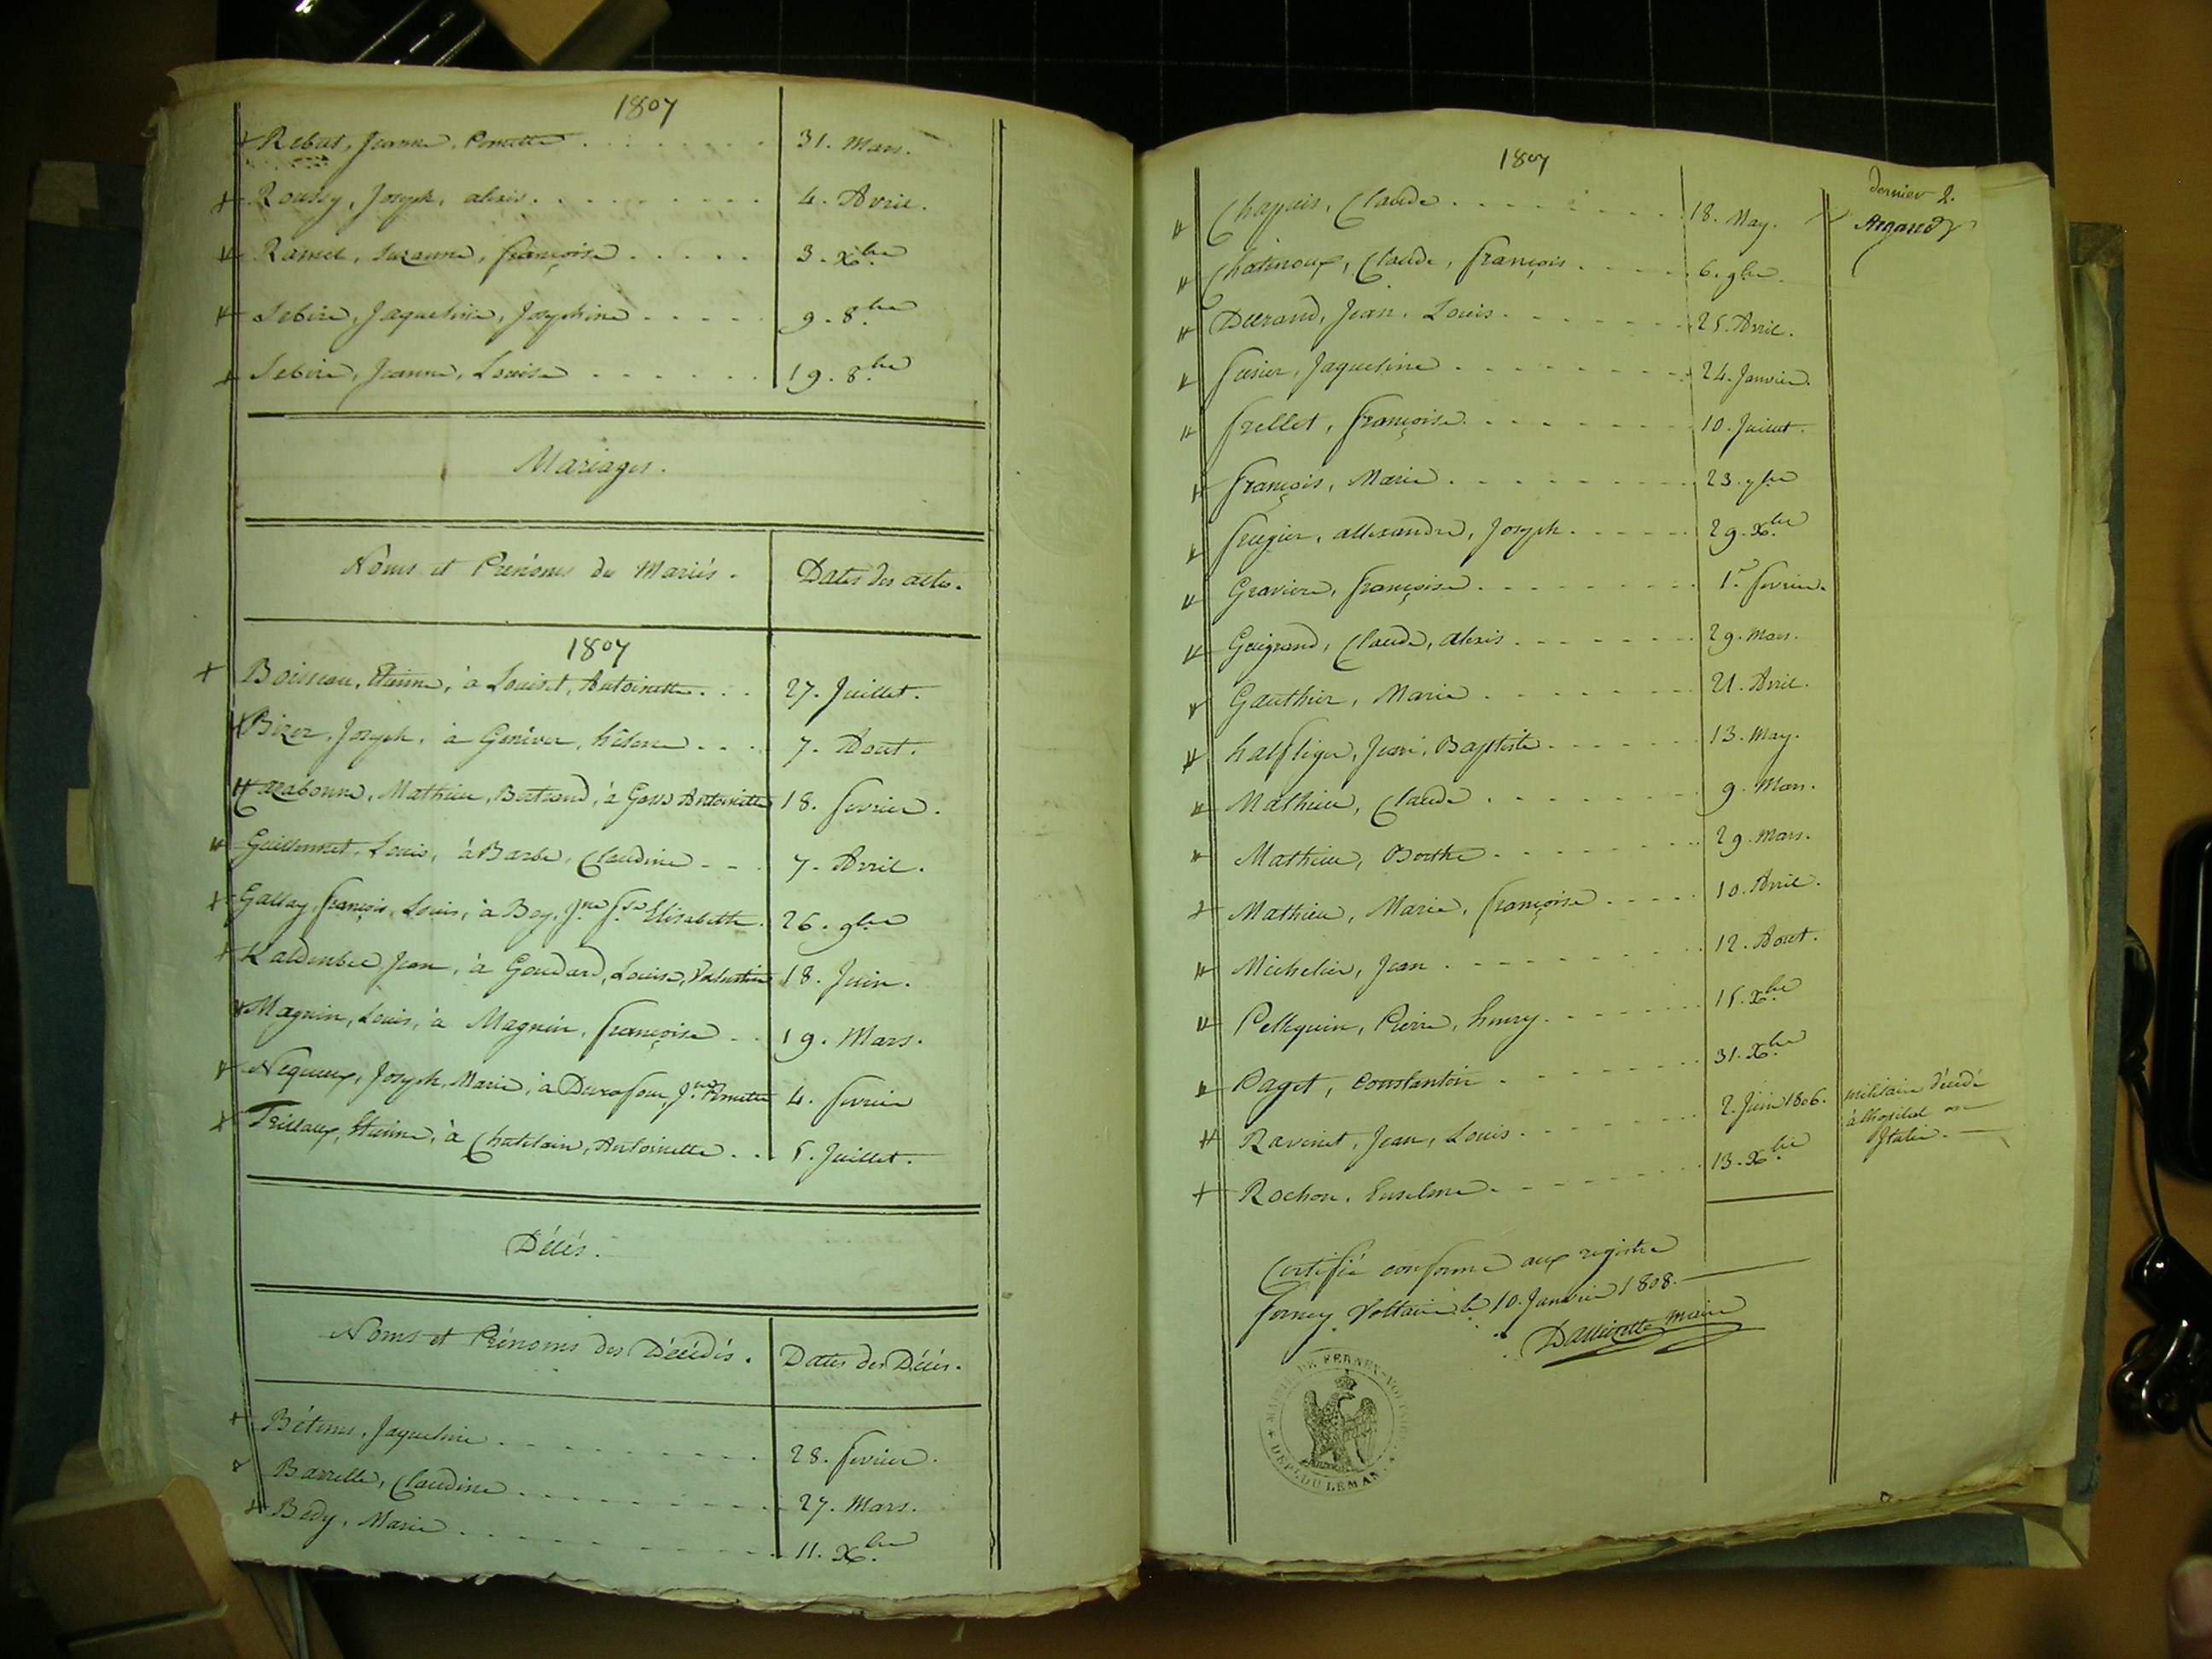 1807
Rebut, Jeanne, Pernette 31. Mars.
Roussy, Joseph, alexis 4. Avril.
Ramel, Suzanne, françoise 3. Xbre
Sebire, Jaqueline, Josephine 9. 8bre
Sebire, Jeanne, Louise 19. 8bre
Mariages.
Noms et Prénoms des Mariés. Dates des actes.
1807
Boisseau, Etienne, à Louiset, Antoinette 27. Juillet.
Bizer, Joseph, à Genêver, hélene 7. Aout.
Carabonne, Mathieu, Bertrand, à Goss Antoinette 18. fevrier.
Guillermet, Louis, à Barbe, Claudine 7. Avril.
Gallay, françois, Louis, à Bey, Jne fse Elisabeth 26. 9bre
Kaldenbec, Jean, à Goudard, Louise, Valentine 18. Juin.
Magnin, Louis, à Magnin, françoise 19. Mars.
Nequeux, Joseph, Marie, à Durafour, Jne Pernette 4. fevrier
Trillaux, Etienne, à Chatelain, Antoinette 5. Juillet.
Décés.
Noms et Prénoms des Décédés. Dates des Décés.
Bétems, Jaqueline 28. fevrier.
Barrelle, Claudine 27. Mars.
Bedy, Marie 11. Xbre
1807
dernier 2.
Argand
Chappuis, Claude 18. May.
Chatenoux, Claude, françois 6. 9bre
Durand, Jean, Louis 25. Avril.
fusier, Jaqueline 24. Janvier.
frellet, françoise 10. Juillet.
françois, Marie 23. 9bre
frugier, allexandre, Joseph 29. Xbre
Graviere, françoise 1r fevrier.
Guigrand, Claude, alexis 29. Mars.
Gauthier, Marie 21. Avril.
halfliger, Jean, Baptiste 13. May.
Mathieu, Claude 9. Mars.
Mathieu, Berthe 29. Mars.
Mathieu, Marie, françoise 10. Avril.
Michelier, Jean 12. Aout.
Pelleguin, Pierre, henry 15. Xbre
Paget, Constantin 31. Xbre
Ravinet, Jean, Louis 2. Juin 1806. militaire décédé
à lhopital en
Italie.
Rochon, Enselme 13. Xbre
Certifié conforme aux registre
ferney Voltaire le 10. Janvier 1808.
maire
MAIRIE DE FERNEY-VOLTAIRE
DEPT. DU LEMAN